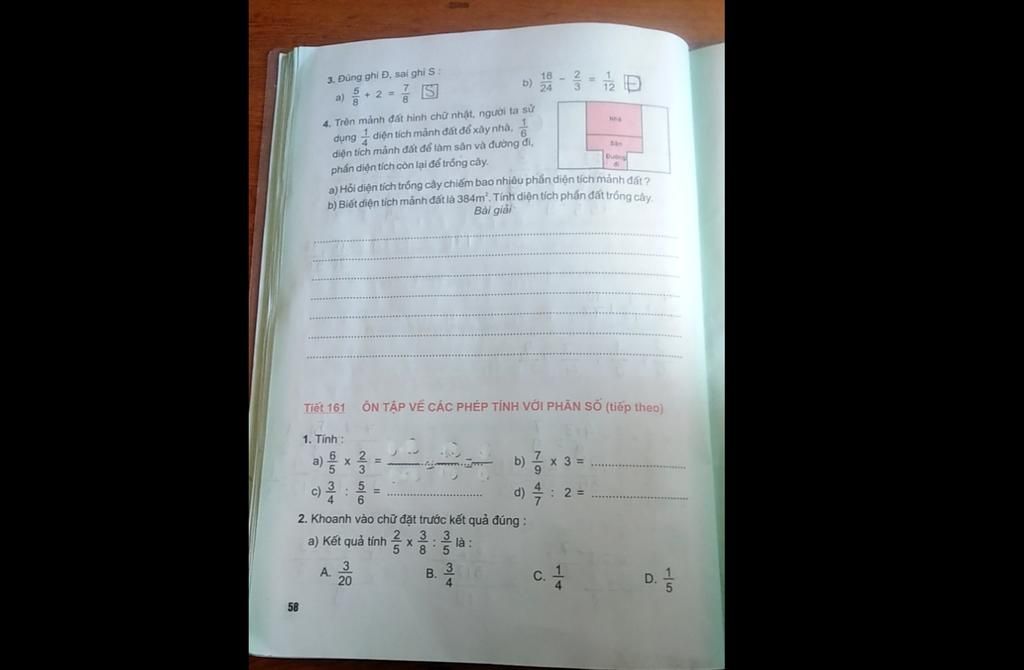 3. Đúng ghi Đ, sai ghi S :
a) 5/8 + 2 = 7/8 S
b) 18/24 - 2/3 = 1/12 Đ
4. Trên mảnh đất hình chữ nhật, người ta sử
dụng 1/4 diện tích mảnh đất để xây nhà, 1/6
diện tích mảnh đất để làm sân và đường đi,
phần diện tích còn lại để trồng cây.
Nhà
Sân
Đường
đi
a) Hỏi diện tích trồng cây chiếm bao nhiêu phần diện tích mảnh đất ?
b) Biết diện tích mảnh đất là 384m². Tính diện tích phần đất trồng cây.
Bài giải
Tiết 161 ÔN TẬP VỀ CÁC PHÉP TÍNH VỚI PHÂN SỐ (tiếp theo)
1. Tính :
a) 6/5 x 2/3 =
b) 7/9 x 3 =
c) 3/4 : 5/6 =
d) 4/7 : 2 =
2. Khoanh vào chữ đặt trước kết quả đúng :
a) Kết quả tính 2/5 x 3/8 : 3/5 là :
A. 3/20 B. 3/4 C. 1/4 D. 1/5
58